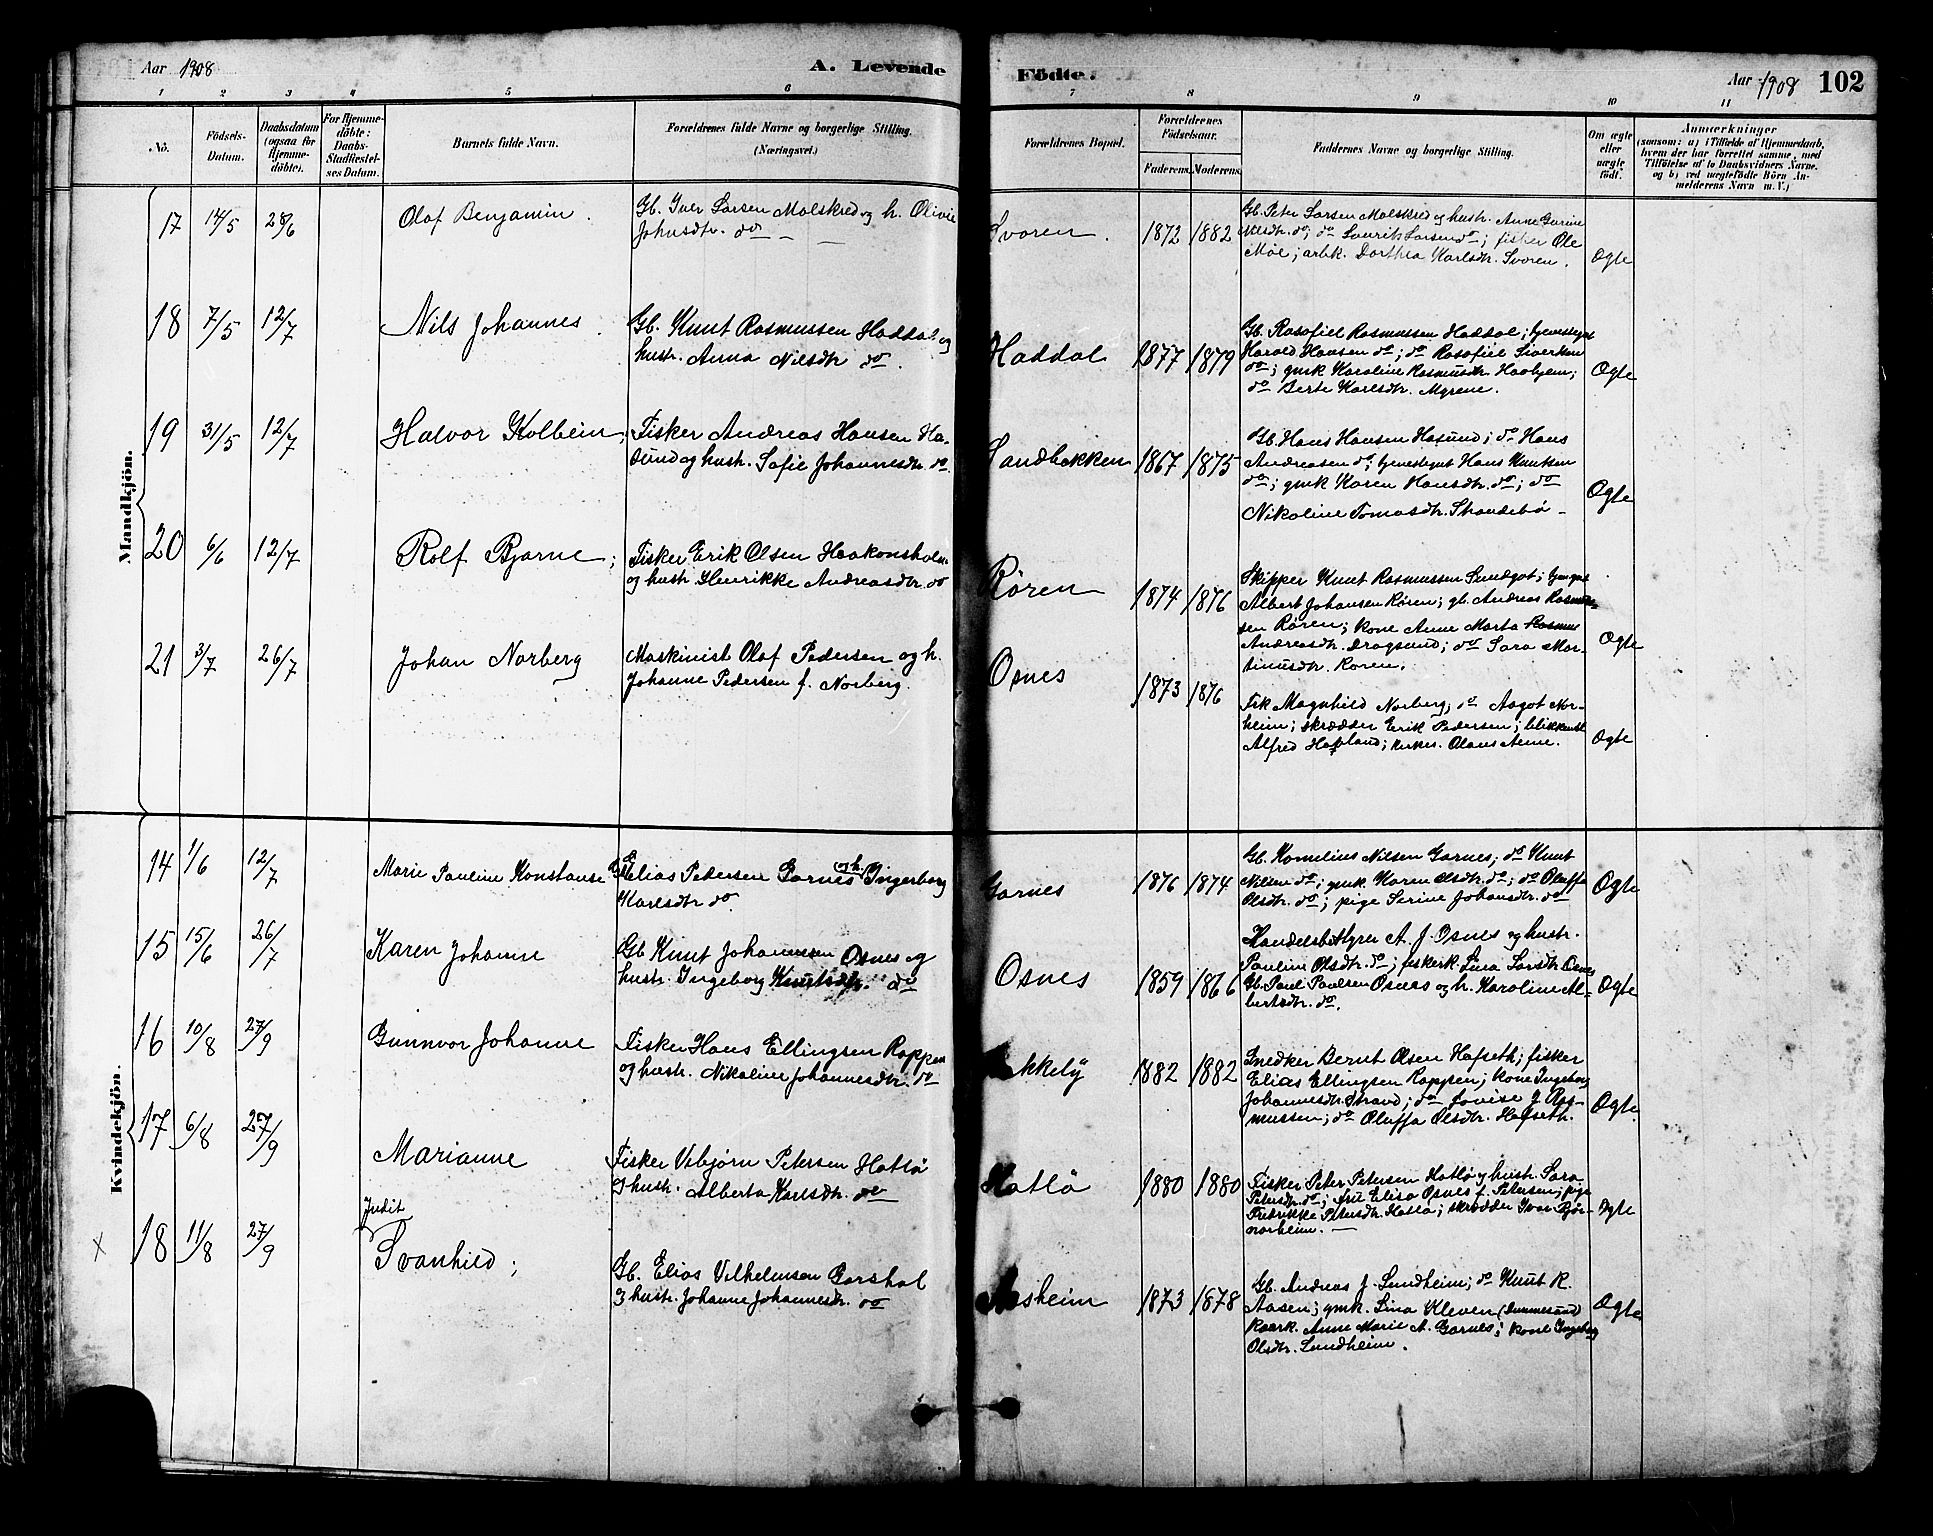 Aar 1908
A. Levende
Födte.
Aar 1908
102
1 2 3 4 5 6 7 8 9 10 11
No.
Födsels-
Datum.
Daabsdatum
(ogsaa for
Hjemme-
döbte).
For Hjemme-
döbte:
Daabs-
Stadfæstel-
ses Datum.
Barnets fulde Navn.
Forældrenes fulde Navne og borgerlige Stilling.
(Næringsvei.)
Forældrenes Bopæl.
Forældrenes
Födselsaar.
Faderens. Moderens.
Faddernes Navne og borgerlige Stilling.
Om ægte
eller
uægte
födt.
Anmærkninger
(saasom: a) i Tilfælde af Hjemmedaab,
hvem der har forrettet samme, med
Tilföielse af to Daabsvidners Navne,
og b) ved uægtefödte Börn An-
melderens Navn m. V.)
Mandkjön.
17 14/5 28/6 Olaf Benjamin.
Gb. Iver Larsen Molskred og h. Olivie
Johnsdtr. do
Svoren. 1872 1882
Gb. Peter Larsen Molskred og hustr. Anne Gurine
Nilsdtr. do; do Laurits Larsen do; fisker Ole
Moe; arbk. Dorthea Karlsdtr. Svoren.
Ogte
18 7/5 12/7 Nils Johannes.
Gb. Knut Rasmussen Haddal og
hustr. Anna Nilsdtr do.
Haddal 1877 1879
Gb. Rasofiel Rasmussen Haddal; tjenestegut
Harald Hansen do; do Rasofiel Siversen
do; gmk Karoline Rasmusdtr. Haahjem;
do Berte Karlsdtr. Myrene.
Ogte
19 31/5 12/7 Halvor Kolbein;
Fisker Andreas Hansen Ha-
sund og hustr. Sofie Johannesdtr. do
Sandbakken 1867 1875
Gb. Hans Hansen Hasund; do Hans
Andreasen do; tjenestegut Hans Knutsen
do; gmk Karen Hansdtr. do; do
Nikoline Tomasdtr. Strandebö -
Ogte
20 6/6 12/7 Rolf Bjarne;
Fisker Erik Olsen Haakonsholm
og hustr Henrikke Andreasdtr. do
Rören 1874 1876
Skipper Knut Rasmussen Sundgot;
Albert Johansen Rören; gb. Andreas Rasmus-
sen Rören; kone Anne Marta
Andreasdtr. Dragsund; do Sara Mar-
tinusdtr. Roren.
Ogte
21 3/7 26/7 Johan Norberg
Maskinist Olaf Pedersen og h.
Johanne Pedersen f. Norberg.
Osnes 1873 1876
Frk Magnhild Norberg; do Aagot Nor-
heim; skrædder Erik Pedersen;
Alfred Hapland; Olaus Aene.
Ogte
Kvindekjön.
14 1/6 12/7 Marie Pauline Konstanse
Gb Elias Pedersen Garnes og h. Ingeborg
Karlsdtr do.
Garnes 1876 1874
Gb. Kornelius Nilsen Garnes; do Knut
Nilsen do; gmk. Karen Olsdtr. do; do Oluffa
Olsdtr. do; pige Serine Johansdtr. do
Ogte
15 15/6 26/7 Karen Johanne
Gb Knut Johannesen Osnes og
hustr. Ingeborg Knutsdtr. do
Osnes 1859 1866
Handelsbestyrer A. J. Osnes og hustr.
Pauline Olsdtr. do; fiskerk. Lina Larsdtr Osnes
Gb. Paul Paulsen Osnes og h. Karoline Al-
bertsdtr. do.
Ogte
16 10/8 27/9 Gunnvor Johanne
Fisker Hans Ellingsen Rappen
og hustr. Nikoline Johannesdtr. do
1882 1882
Snedker Bernt Olsen Hafseth; fisker
Elias Ellingsen Rappen; kone Ingeborg
Johannesdtr. Strand; do Lovise J Ras-
mussen; do Oluffa Olsdtr. Hafseth.
Ogte
17 6/8 27/9 Marianne
Fisker Vebjörn Petersen Hatlö
og hustr. Alberta Karlsdtr. do
Hatlö 1880 1880
Fisker Peter Petersen Hatlö og hustr. Sara
Petersdtr. do; fru Elisa Osnes f. Petersen; pige
Fredrikke Petersdtr. Hatlö; skrædder Ivar Björ-
norheim.
Ogte
x 18 11/8 27/9 Judit
Svanhild;
Gb. Elias Vilhelmsen Garshol
og hustr. Johanne Johannesdtr. do
Aasheim 1873 1878
Gb. Andreas J. Sundheim; do Knut R.
Aasen; gmk. Lina Kleven (Dimmesund)
Kaark. Anne Marie A. Garnes; kone Ingeborg
Olsdtr. Sundheim.
Ogte